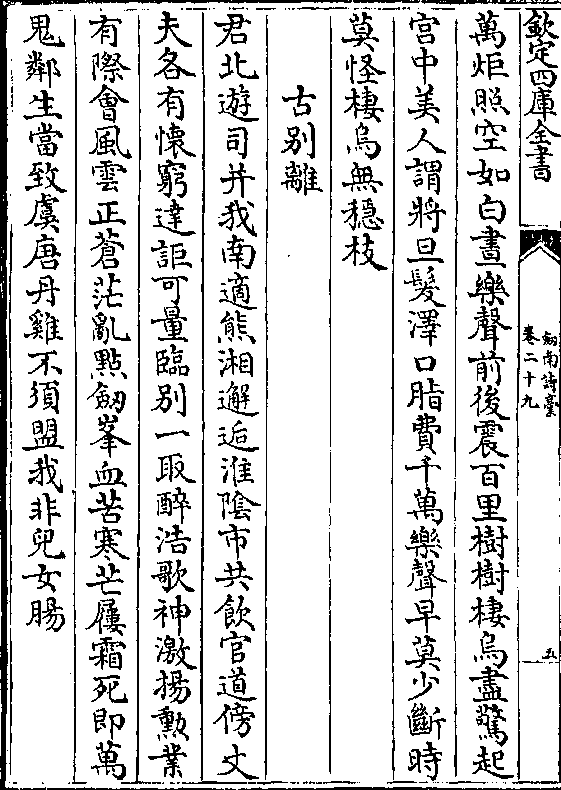 欽定四庫全書
劒南詩稾
卷二十九
五
萬炬照空如白晝樂聲前後震百里樹樹棲烏盡驚起
宮中美人謂將旦髮澤口脂費千萬樂聲早莫少斷時
莫怪棲烏無穏枝
古别離
君北遊司并我南適熊湘邂逅淮陰市共飲官道傍丈
夫各有懐窮達詎可量臨别一取醉浩歌神激揚勲業
有際會風雲正蒼茫亂㸃劒峯血苦寒芒屨霜死即萬
鬼鄰生當致虞唐丹雞不須盟我非兒女腸